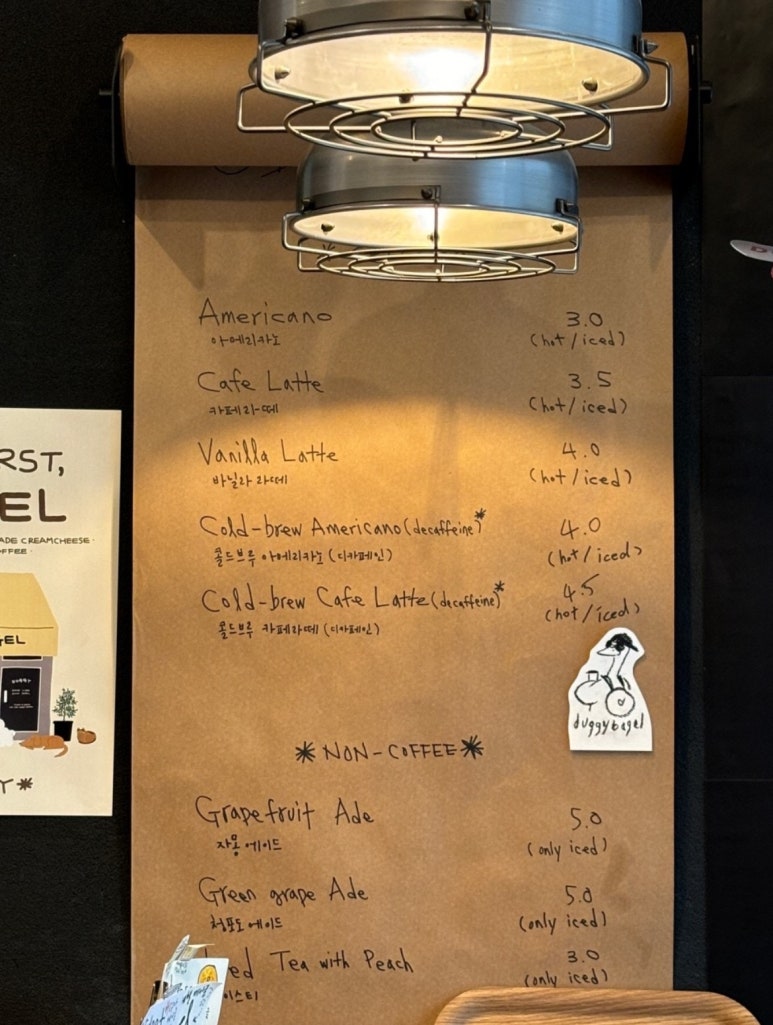 Americano 3.0
아메리카노 (hot/iced)
Cafe Latte 3.5
카페라떼 (hot/iced)
Vanilla Latte 4.0
바닐라 라떼 (hot/iced)
Cold-brew Americano (decaffeine)* 4.0
콜드브루 아메리카노 (디카페인) (hot/iced)
Cold-brew Cafe Latte (decaffeine)* 4.5
콜드브루 카페라떼 (디카페인) (hot/iced)
duggybagel
*NON-COFFEE*
Grapefruit Ade 5.0
자몽에이드 (only iced)
Green grape Ade 5.0
청포도에이드 (only iced)
Tea with Peach 3.0
(only iced)
RST,
EL
ADE CREAMCHEESE
OFFEE
GEL
Y*